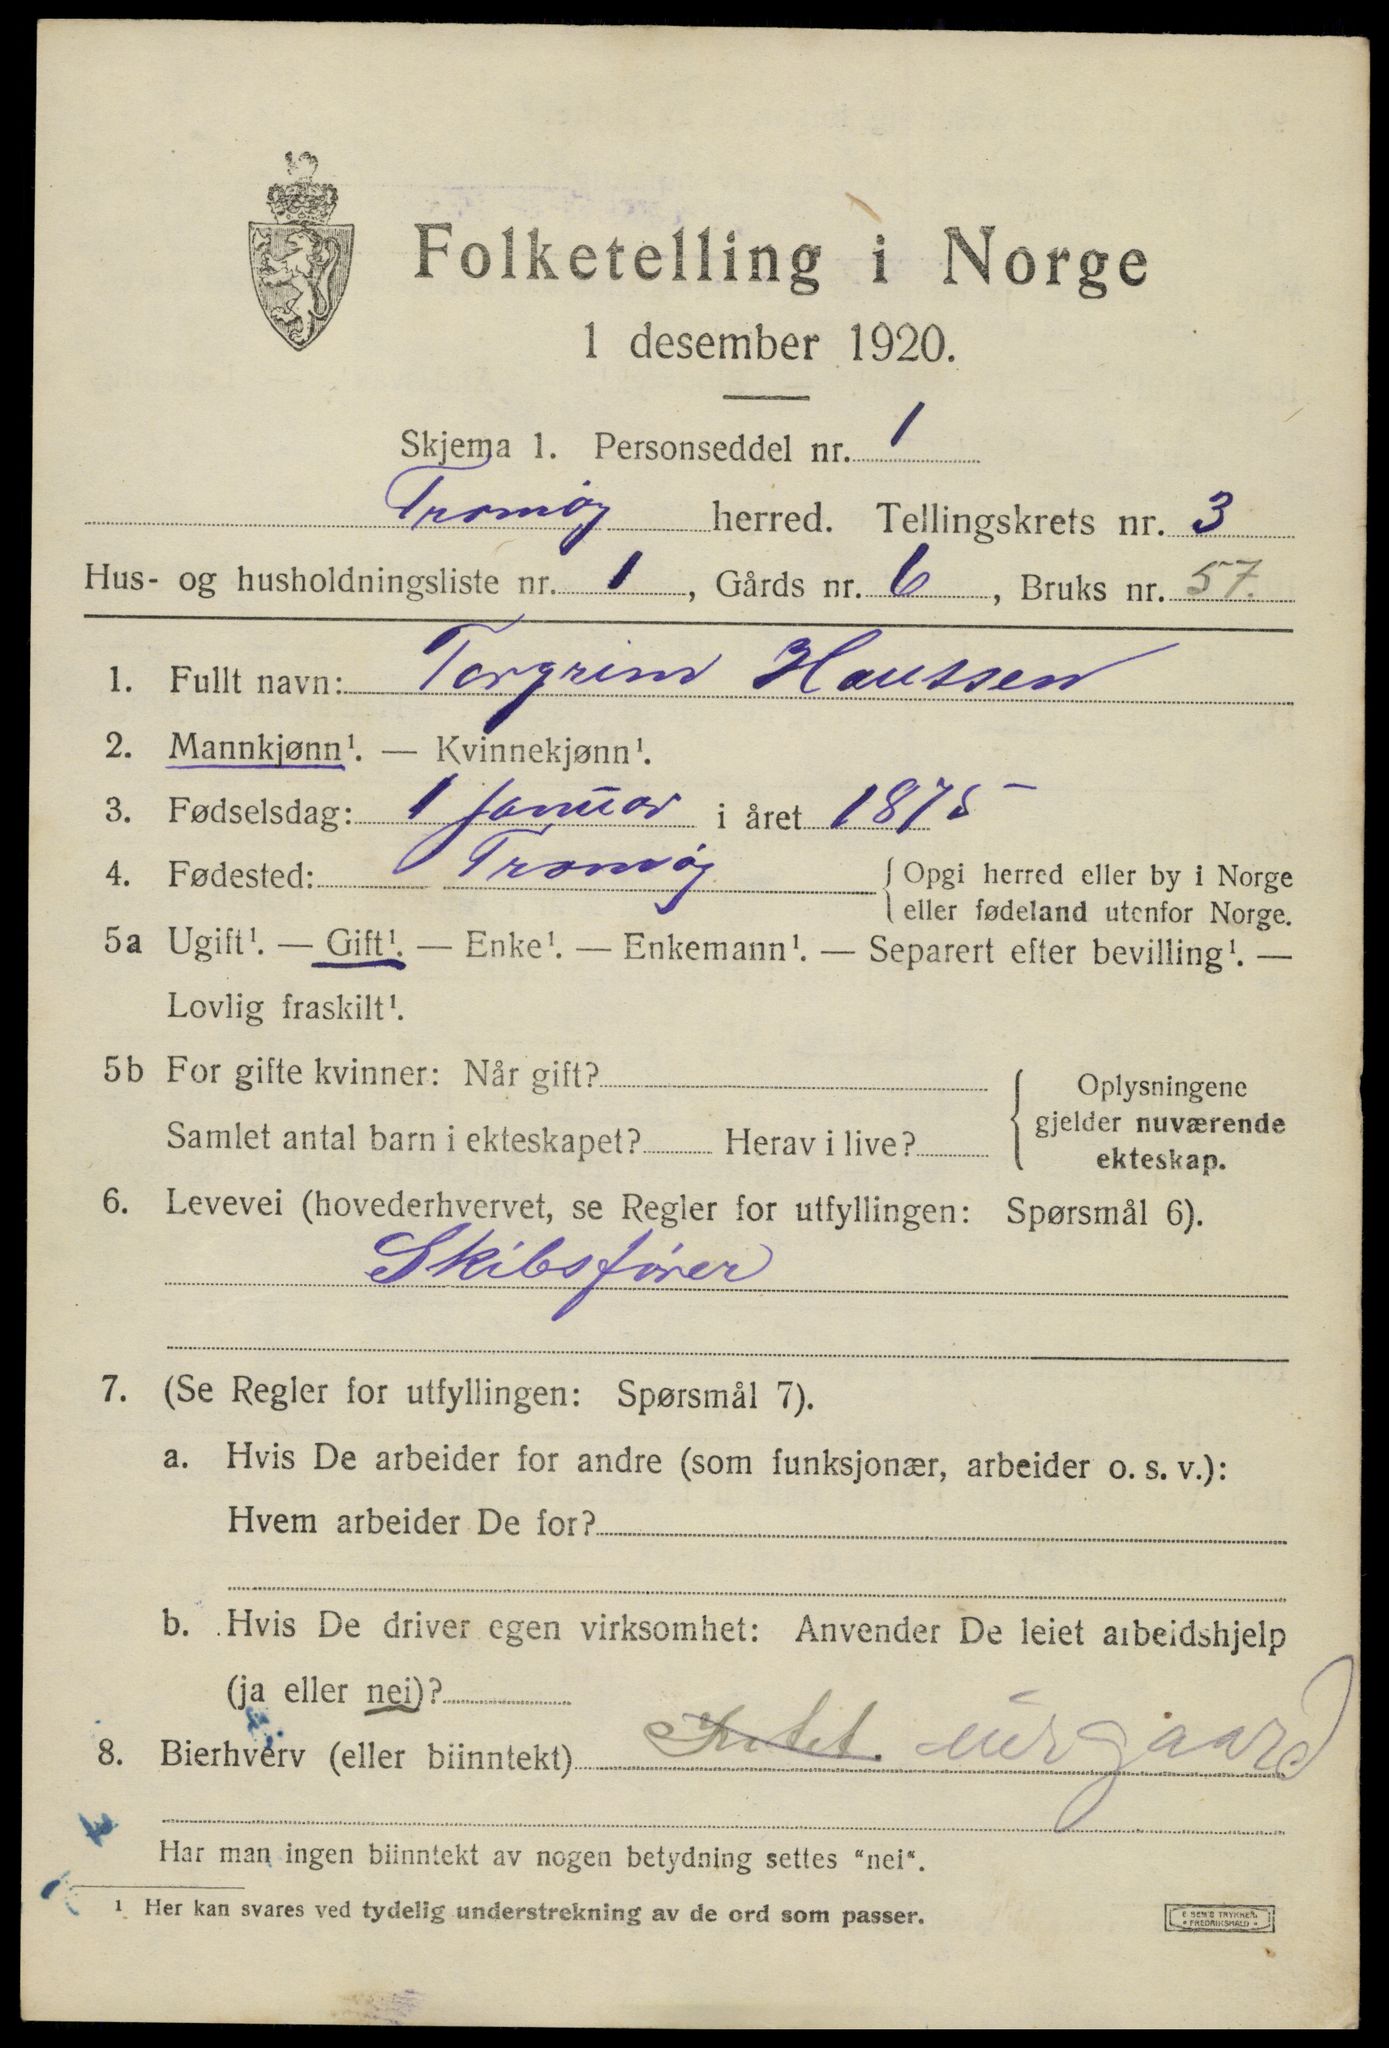 Folketelling i Norge
1 desember 1920.
Skjema 1. Personseddel nr. 1
Tromøy herred. Tellingskrets nr. 3
Hus- og husholdningsliste nr. 1, Gårds nr. 6, Bruks nr. 57.
1. Fullt navn: Torgrim Haussen
2. Mannkjønn¹. — Kvinnekjønn¹.
3. Fødselsdag: 1 Januar i året 1875
4. Fødested: Tromøy { Opgi herred eller by i Norge
eller fødeland utenfor Norge.
5a Ugift¹. — Gift¹. — Enke¹. — Enkemann¹. — Separert efter bevilling¹. —
Lovlig fraskilt¹.
5b For gifte kvinner: Når gift?
Samlet antal barn i ekteskapet? Herav i live?
Oplysningene
gjelder nuværende
ekteskap.
6. Levevei (hovederhvervet, se Regler for utfyllingen: Spørsmål 6).
Skibsfører
7. (Se Regler for utfyllingen: Spørsmål 7).
a. Hvis De arbeider for andre (som funksjonær, arbeider o. s. v.):
Hvem arbeider De for?
b. Hvis De driver egen virksomhet: Anvender De leiet arbeidshjelp
(ja eller nei)?
8. Bierhverv (eller biinntekt)
Har man ingen biinntekt av nogen betydning settes “nei“.
¹ Her kan svares ved tydelig understrekning av de ord som passer.